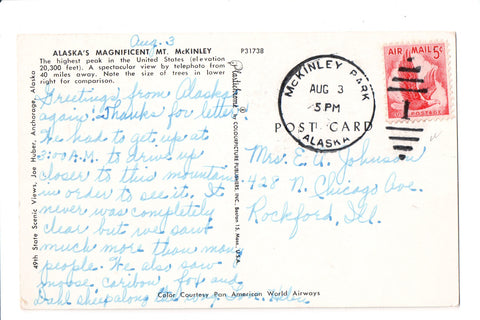 Aug. 3
ALASKA'S MAGNIFICENT MT. McKINLEY
The highest peak in the United States (elevation
20,300 feet). A spectacular view by telephoto from
40 miles away. Note the size of trees in lower
right for comparison.
P31738
Greetings from Alaska
again. Thanks for letter.
We had to get up at
3:00 A.M. to drive up
closer to this mountain
in order to see it. It
never was completely
clear but we saw
much more than many
people. We also saw
moose caribou fox and
Dahl sheep along the
49th State Scenic Views, Joe Huber, Anchorage, Alaska
Plastichrome ®
by COLOURPICTURE PUBLISHERS, INC., Boston 15, Mass., U.S.A.
McKINLEY PARK
AUG 3
5 PM
ALASKA
AIR MAIL 5¢
POSTAGE
POST CARD
Mrs. E. A. Johnson
428 N. Chicago Ave.
Rockford, Ill.
Color Courtesy Pan American World Airways